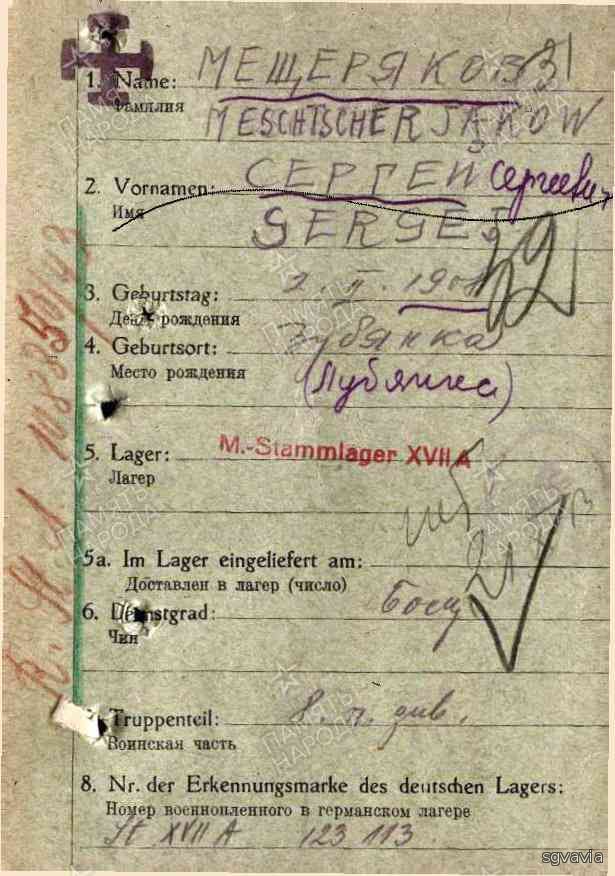 1. Name: МЕЩЕРЯКОВ
Фамилия
MESCHTSCHERJAKOW
2. Vornamen: СЕРГЕЙ Сергеевич
Имя
SERGEJ
3. Geburtstag:
День рождения
4. Geburtsort:
Место рождения
(Лубянка)
5. Lager: M.-Stammlager XVII A
Лагерь
5a. Im Lager eingeliefert am:
Доставлен в лагерь (число)
6. Dienstgrad: Боец
Чин
Truppenteil: 8. п. див.
Воинская часть
8. Nr. der Erkennungsmarke des deutschen Lagers:
Номер военнопленного в германском лагере
St XVII A 123 113
ПАМЯТЬ НАРОДА
sgvavia